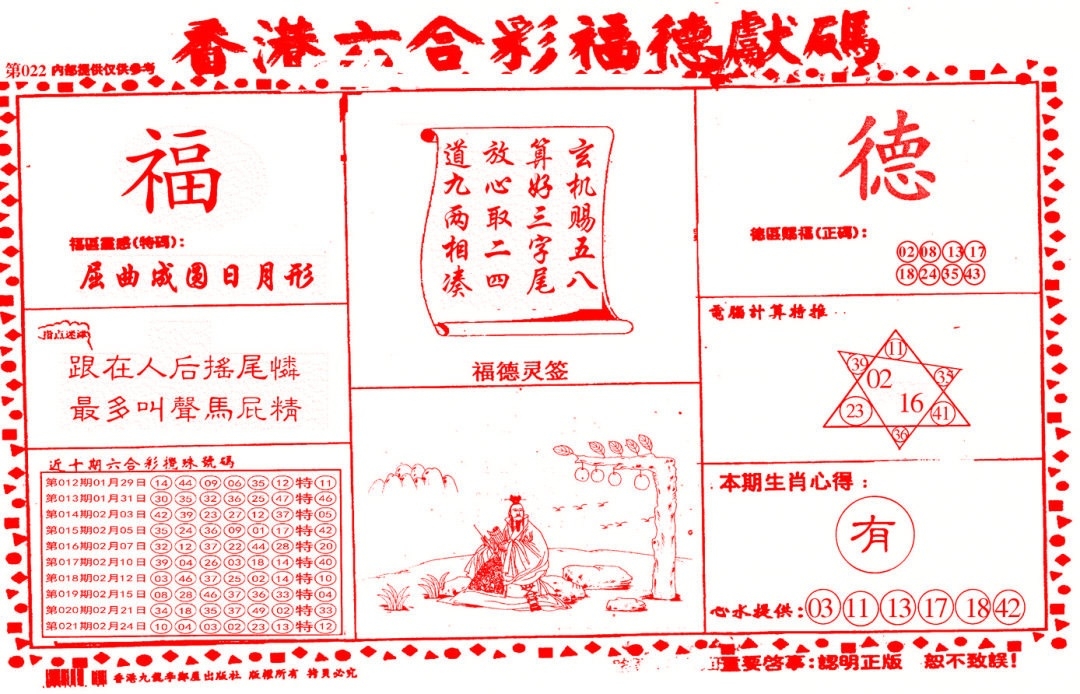 香港六合彩福德獻碼
第022 内部提供仅供参考
福
福區靈感(特碼):
屈曲成圆日月形
指点迷津
跟在人后搖尾憐
最多叫聲馬屁精
近十期六合彩攪珠號碼
第012期01月29日 14 44 09 06 35 12 特 11
第013期01月31日 30 35 32 36 25 47 特 46
第014期02月03日 42 39 23 27 12 37 特 05
第015期02月05日 35 24 36 09 01 17 特 42
第016期02月07日 32 12 37 22 44 28 特 20
第017期02月10日 39 04 26 03 18 14 特 40
第018期02月12日 03 46 37 25 02 14 特 10
第019期02月15日 08 28 46 37 36 33 特 04
第020期02月21日 34 18 35 37 49 02 特 33
第021期02月24日 10 04 03 02 23 13 特 12
玄机赐五八
算好三字尾
放心取二四
道九两相凑
福德灵签
德
德區賜福(正碼):
02 08 13 17
18 24 35 43
電腦計算特推
11
39 02 35
23 16 41
36
本期生肖心得:
有
心水提供:03 11 13 17 18 42
香港九龍李鄭屋出版社 版權所有 拷貝必究
重要啓事:認明正版 恕不致誤!